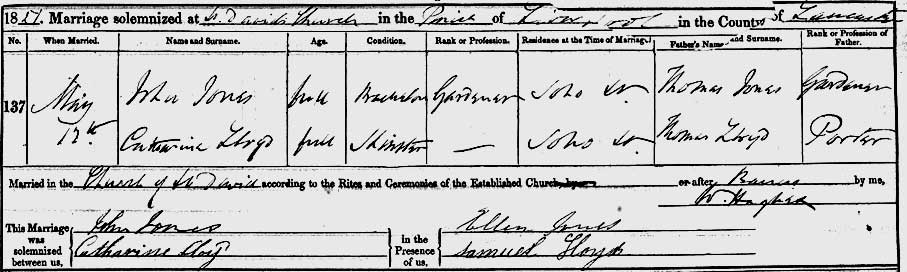 18 Marriage solemnized at St. David's Church in the of Liverpool in the County of Lancaster
No. When Married. Name and Surname. Age. Condition. Rank or Profession. Residence at the Time of Marriage Father's Name and Surname. Rank or Profession of Father.
137 May 17th John Jones full Bachelor Gardener Soho St Thomas Jones Gardener
Catharine Lloyd full Spinster — Soho St Thomas Lloyd Porter
Married in the Church of St David according to the Rites and Ceremonies of the Established Church, or after Banns by me,
W. Hughes
This Marriage was solemnized between us,
John Jones
Catharine Lloyd
In the Presence of us,
Ellen Jones
Samuel Lloyd